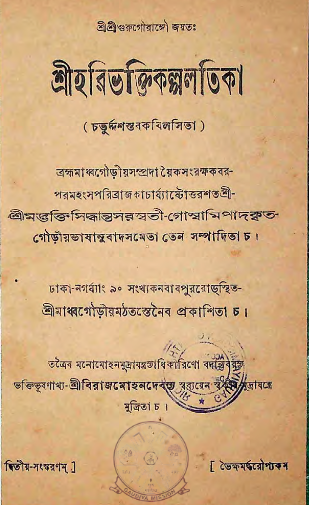 শ্রীশ্রীগুরুগৌরাঙ্গৌ জয়তঃ
শ্রীহরিভক্তিকল্পলতিকা
( চতুর্দ্দশস্তবকবিলসিতা )
ব্রহ্মমাধ্বগৌড়ীয়সম্প্রদায়ৈকসংরক্ষকবর-
পরমহংসপরিব্রাজকাচার্য্যাষ্টোত্তরশতশ্রী-
শ্রীমদ্ভক্তিসিদ্ধান্তসরস্বতী-গোস্বামিপাদকৃত-
গৌড়ীয়ভাষানুবাদসমেতা তেন সম্পাদিতা চ ।
ঢাকা-নগর্য্যাং ৯০ সংখ্যকনবাবপুররোড্‌স্থিত-
শ্রীমাধ্বগৌড়ীয়মঠতস্তেনৈব প্রকাশিতা চ ।
তত্রৈব মনোমোহনমুদ্রাযন্ত্রস্যাধিকারিণো
ভক্তিভূষণাখ্য-শ্রীবিরাজমোহনদেবস্য মুদ্রাযন্ত্রে
মুদ্রিতা চ ।
দ্বিতীয়-সংস্করণম্ ] [ ভৈক্ষমর্দ্ধরৌপ্যকম্